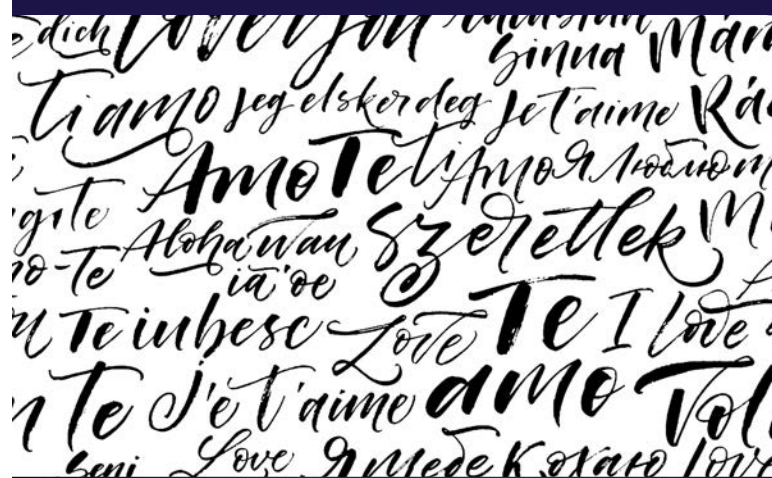 dich love you
sinna Mám
Ti amo Jeg elsker deg Je t'aime Rá
Amo Te Ti Amo Я люблю
Aloha wau Szeretlek
iā 'oe
Te iubesc Love Te I love
Te J'e t'aime amo Vol
seni Love Я тебе кохаю love